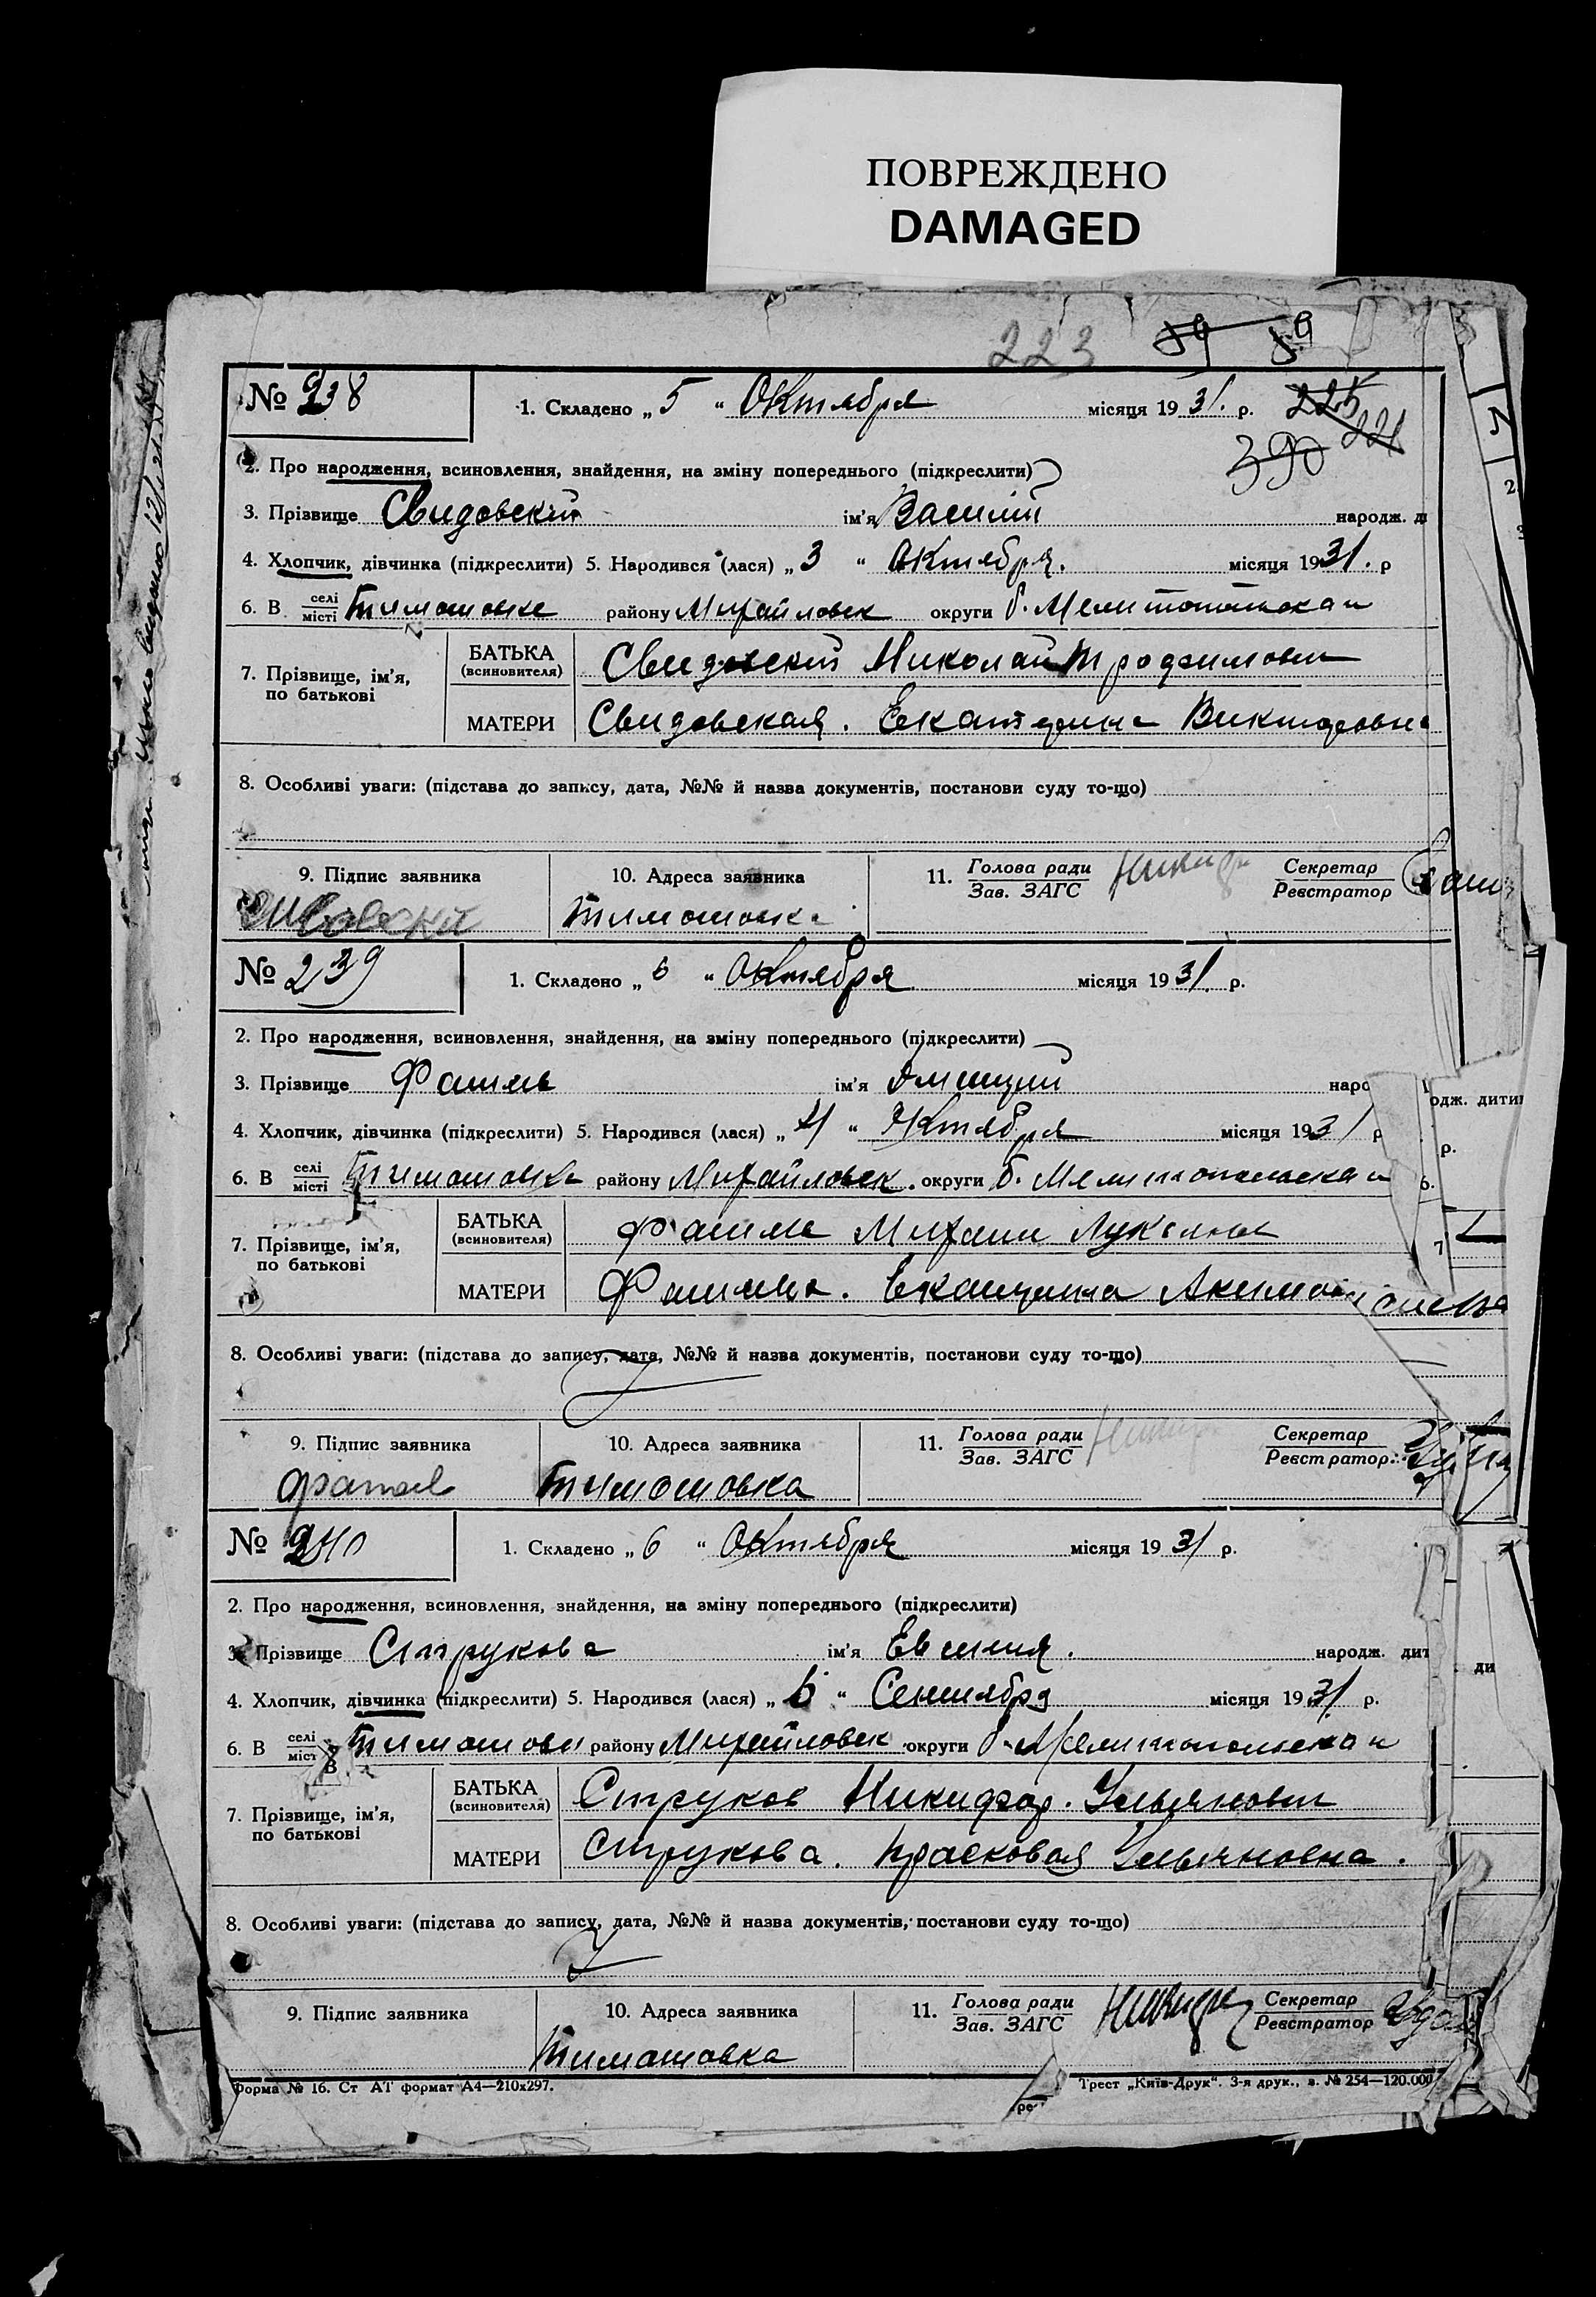 ПОВРЕЖДЕНО
DAMAGED
223 59 59
№ 238
1. Складено „ 5 “ Октября місяця 1931. р. 225
390 221
2. Про народження, всиновлення, знайдення, на зміну попереднього (підкреслити)
3. Прізвище Свидовский ім’я Василий народж. ди
4. Хлопчик, дівчинка (підкреслити) 5. Народився (лася) „ 3 “ Октября. місяця 1931. р
6. В селі місті Тимошовке району Михайловск округи б. Мелитопольской
7. Прізвище, ім’я, по батькові
БАТЬКА (всиновителя) Свидовский Николай Трофимович
МАТЕРИ Свидовская. Екатерина Викторовна
8. Особливі уваги: (підстава до запису, дата, №№ й назва документів, постанови суду то-що)
9. Підпис заявника 10. Адреса заявника 11. Голова ради Зав. ЗАГС Секретар Реєстратор
Тимошовка
№ 239
1. Складено „ 6 “ Октября місяця 1931. р.
2. Про народження, всиновлення, знайдення, на зміну попереднього (підкреслити)
3. Прізвище ім’я Дмитрий наро одж. дити
4. Хлопчик, дівчинка (підкреслити) 5. Народився (лася) „ 4 “ Октября місяця 1931 р р.
6. В селі місті Тимошовке району Михайловск. округи б. Мелитопольской 6.
7. Прізвище, ім’я, по батькові 7
БАТЬКА (всиновителя)
МАТЕРИ Екатерина
8. Особливі уваги: (підстава до запису, дата, №№ й назва документів, постанови суду то-що)
9. Підпис заявника 10. Адреса заявника 11. Голова ради Зав. ЗАГС Секретар Реєстратор
Тимошовка
№ 240
1. Складено „ 6 “ Октября місяця 1931 р.
2. Про народження, всиновлення, знайдення, на зміну попереднього (підкреслити)
3. Прізвище Струкова ім’я народж. дит ди
4. Хлопчик, дівчинка (підкреслити) 5. Народився (лася) „ 6 “ Сентября місяця 1931 р.
6. В селі міст району Михайловск округи б. Мелитопольской
7. Прізвище, ім’я, по батькові
БАТЬКА (всиновителя) Струков Никифор. Ульянович
МАТЕРИ Струкова. Прасковая Ульяновна.
8. Особливі уваги: (підстава до запису, дата, №№ й назва документів, постанови суду то-що)
9. Підпис заявника 10. Адреса заявника 11. Голова ради Зав. ЗАГС Секретар Реєстратор
Тимошовка
Форма № 16. Ст АТ формат А4—210х297. Трест „Київ-Друк“. 3-я друк., з. № 254—120.000